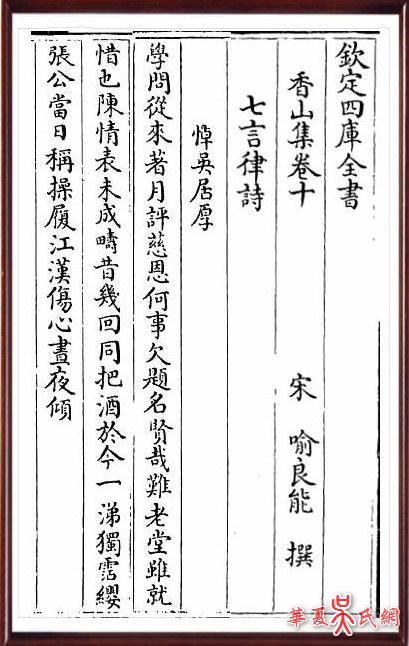 欽定四庫全書
香山集卷十
宋 喻良能 撰
七言律詩
悼吳居厚
學問從來著月評慈恩何事欠題名賢哉難老堂雖就
惜也陳情表未成疇昔幾回同把酒於今一涕獨霑纓
張公當日稱操履江漢傷心晝夜傾
華夏吳氏網